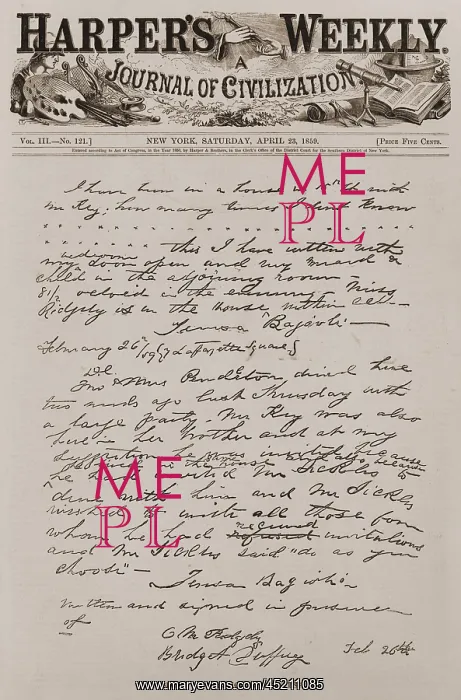 HARPER'S WEEKLY.
A
JOURNAL OF CIVILIZATION
VOL. III.—No. 121.] NEW YORK, SATURDAY, APRIL 23, 1859. [PRICE FIVE CENTS.
Entered according to Act of Congress, in the Year 1859, by Harper & Brothers, in the Clerk's Office of the District Court for the Southern District of New York.
I have been in a house in 15th with
Mr Key; how many times I dont know
this I have written with
my bedroom door open and my maid &
child in the adjoining room
8 1/2 oclock in the evening Miss
Ridgely is in the house within call
Teresa Bagioli
February 26th /59 Lafayette Square
D.C.
Mr & Mrs Pendleton dined here
two weeks ago last Thursday with
a large party. Mr Key was also
here. her brother and at my
suggestion he was invited because
he lived in the house and also because
he had invited Mr Sickles to
dine with him and Mr Sickles
wished to invite all those from
whom he had received refused invitations
and Mr Sickles said "do as you
choose"
Teresa Bagioli
Written and signed in presence
of
C. M. Ridgely
Bridget Duffy Feb 26th
ME
PL
ME
PL
www.maryevans.com/45211085